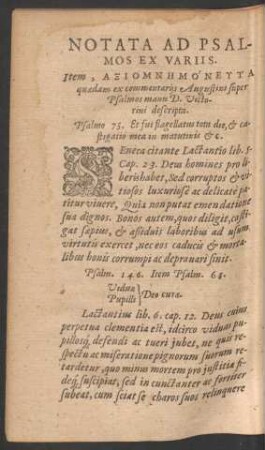 NOTATA AD PSAL-
MOS EX VARIIS.
Item, ΑΞΙΟΜΝΗΜΌΝΕΥΤΑ
quædam ex commentariis Augustini super
Psalmos manu D. Victo-
rini descripta.
Psalmo 73. Et fui flagellatus tota die, & ca-
stigatio mea in matutinis &c.
SEneca citante Lactantio lib. 5.
Cap. 23. Deus homines pro li-
beris habet, Sed corruptos & vi-
tiosos luxuriosè ac delicatè pa-
titur vivere, Quia non putat emendatione
sua dignos. Bonos autem, quos diligit, casti-
gat sæpius, & assiduis laboribus ad usum
virtutis exercet, nec eos caducis & morta-
libus bonis corrumpi ac depravari sinit.
Psalm. 146. Item Psalm. 68.
Viduæ
Pupilli } Deo curæ.
Lactantius lib. 6. cap. 12. Deus cuius
perpetua clementia est, idcirco viduas pu-
pillosq; defendi ac fueri jubet, ne quis re-
spectu ac miseratione pignorum suorum re-
tardetur, quo minus mortem pro justitia fi-
deq; suscipiat, sed in cunctanter ac fortiter
subeat, cum sciat se charos suos relinquere